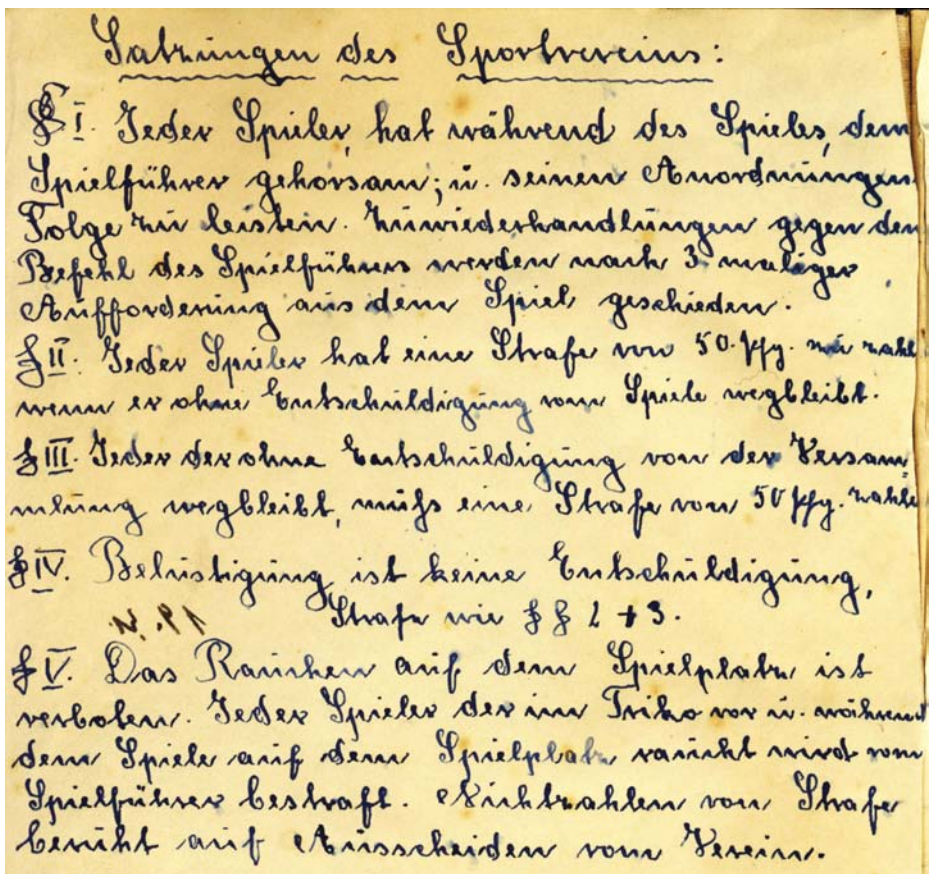 Satzungen des Sportvereins:
§ I. Jeder Spieler, hat während des Spieles, dem
Spielführer gehorsam; u. seinen Anordnungen
Folge zu leisten. Zuwiederhandlungen gegen den
Befehl des Spielführers werden nach 3 maliger
Aufforderung aus dem Spiel geschieden.
§ II. Jeder Spieler hat eine Strafe von 50. Pfg. zu zahl
wenn er ohne Entschuldigung vom Spiele wegbleibt.
§ III. Jeder der ohne Entschuldigung von der Versam=
mlung wegbleibt, muſs eine Strafe von 50 Pfg. zahle
§ IV. Belustigung ist keine Entschuldigung,
Strafe wie § § 2 + 3.
§ V. Das Rauchen auf dem Spielplatz ist
verboten. Jeder Spieler der im Triko vor u. während
dem Spiele auf dem Spielplatz raucht wird vom
Spielführer bestraft. Nichtzahlen von Strafe
beruht auf Ausscheiden vom Verein.